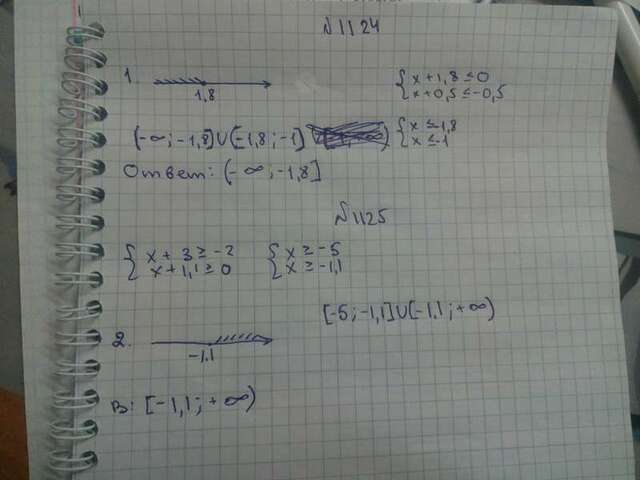 №1124
1.
1,8
{ x + 1,8 ≤ 0
x + 0,5 ≤ -0,5
(-∞; -1,8] ∪ [-1,8; -1]
{ x ≤ -1,8
x ≤ -1
Ответ: (-∞; -1,8]
№1125
{ x + 3 ≥ -2
x + 1,1 ≥ 0
{ x ≥ -5
x ≥ -1,1
[-5; -1,1] ∪ [-1,1; +∞)
2.
-1,1
В: [-1,1; +∞)